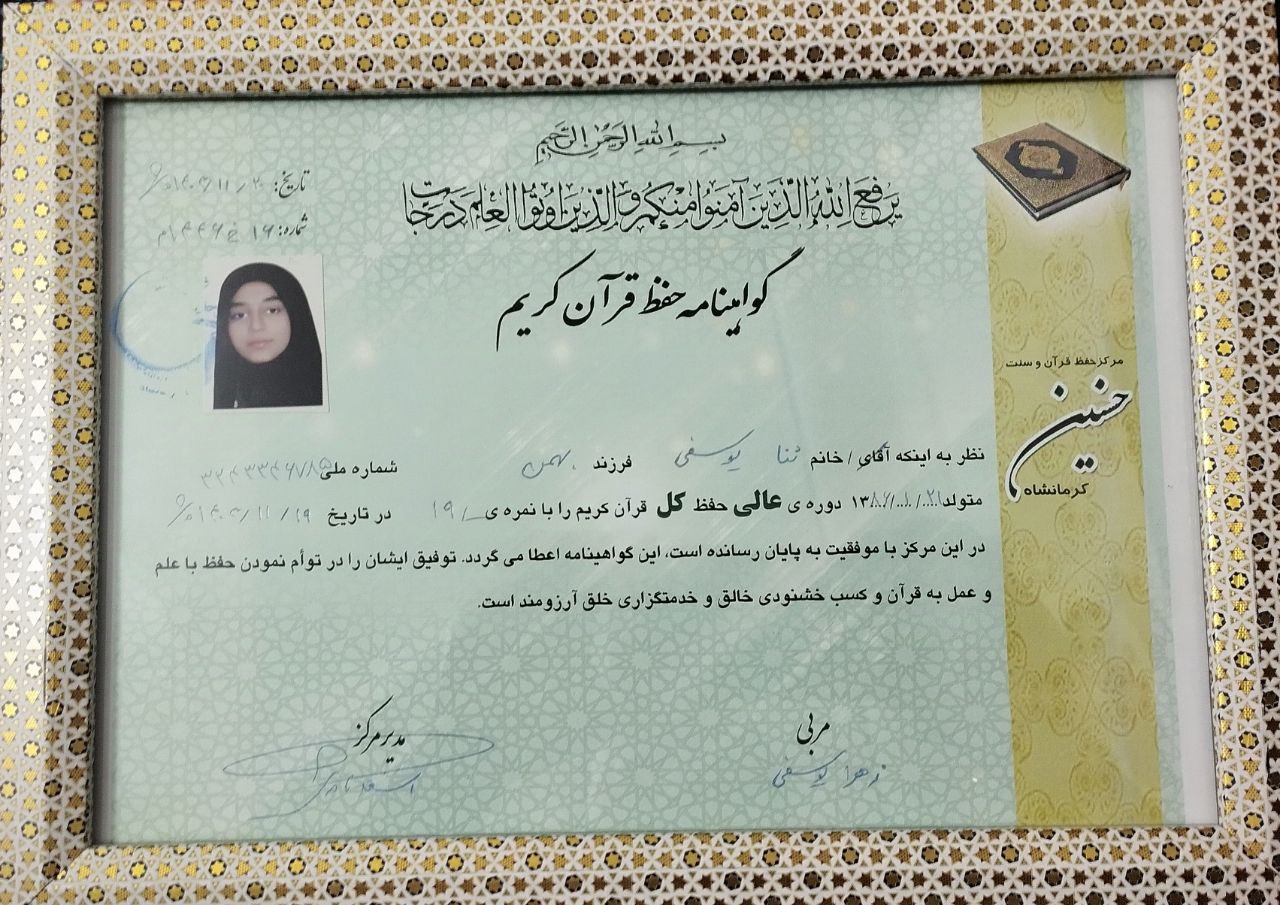 بسم الله الرحمن الرحیم
تاریخ:
یَرْفَعِ اللهُ الَّذینَ آمَنُوا مِنْکُمْ وَ الَّذینَ اُوتُوا العِلمَ دَرَجات
شماره:
گواهینامه حفظ قرآن کریم
مرکز حفظ قرآن و سنت
حسنین
کرمانشاه
نظر به اینکه آقای / خانم ثنا یوسفی فرزند بهمن شماره ملی
متولد دوره ی عالی حفظ کل قرآن کریم را با نمره ی ۱۹ در تاریخ
در این مرکز با موفقیت به پایان رسانده است، این گواهینامه اعطا می گردد. توفیق ایشان را در توأم نمودن حفظ با علم
و عمل به قرآن و کسب خشنودی خالق و خدمتگزاری خلق آرزومند است.
مربی
زهرا یوسفی
مدیر مرکز